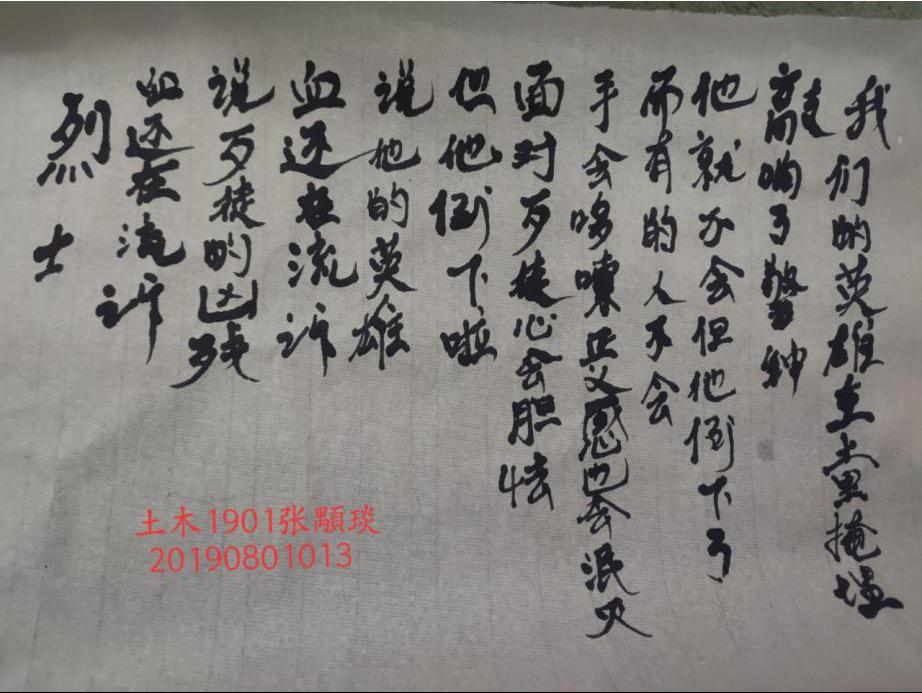 我们的英雄掩埋
敲响了警钟
他就不会但他倒下了
而有的人不会
手会哆嗦正义感也会泯灭
面对歹徒心会胆怯
但他倒下啦
说他的英雄
血还在流诉
说歹徒的凶残
血还在流诉
烈士
土木1901张顒琰
20190801013